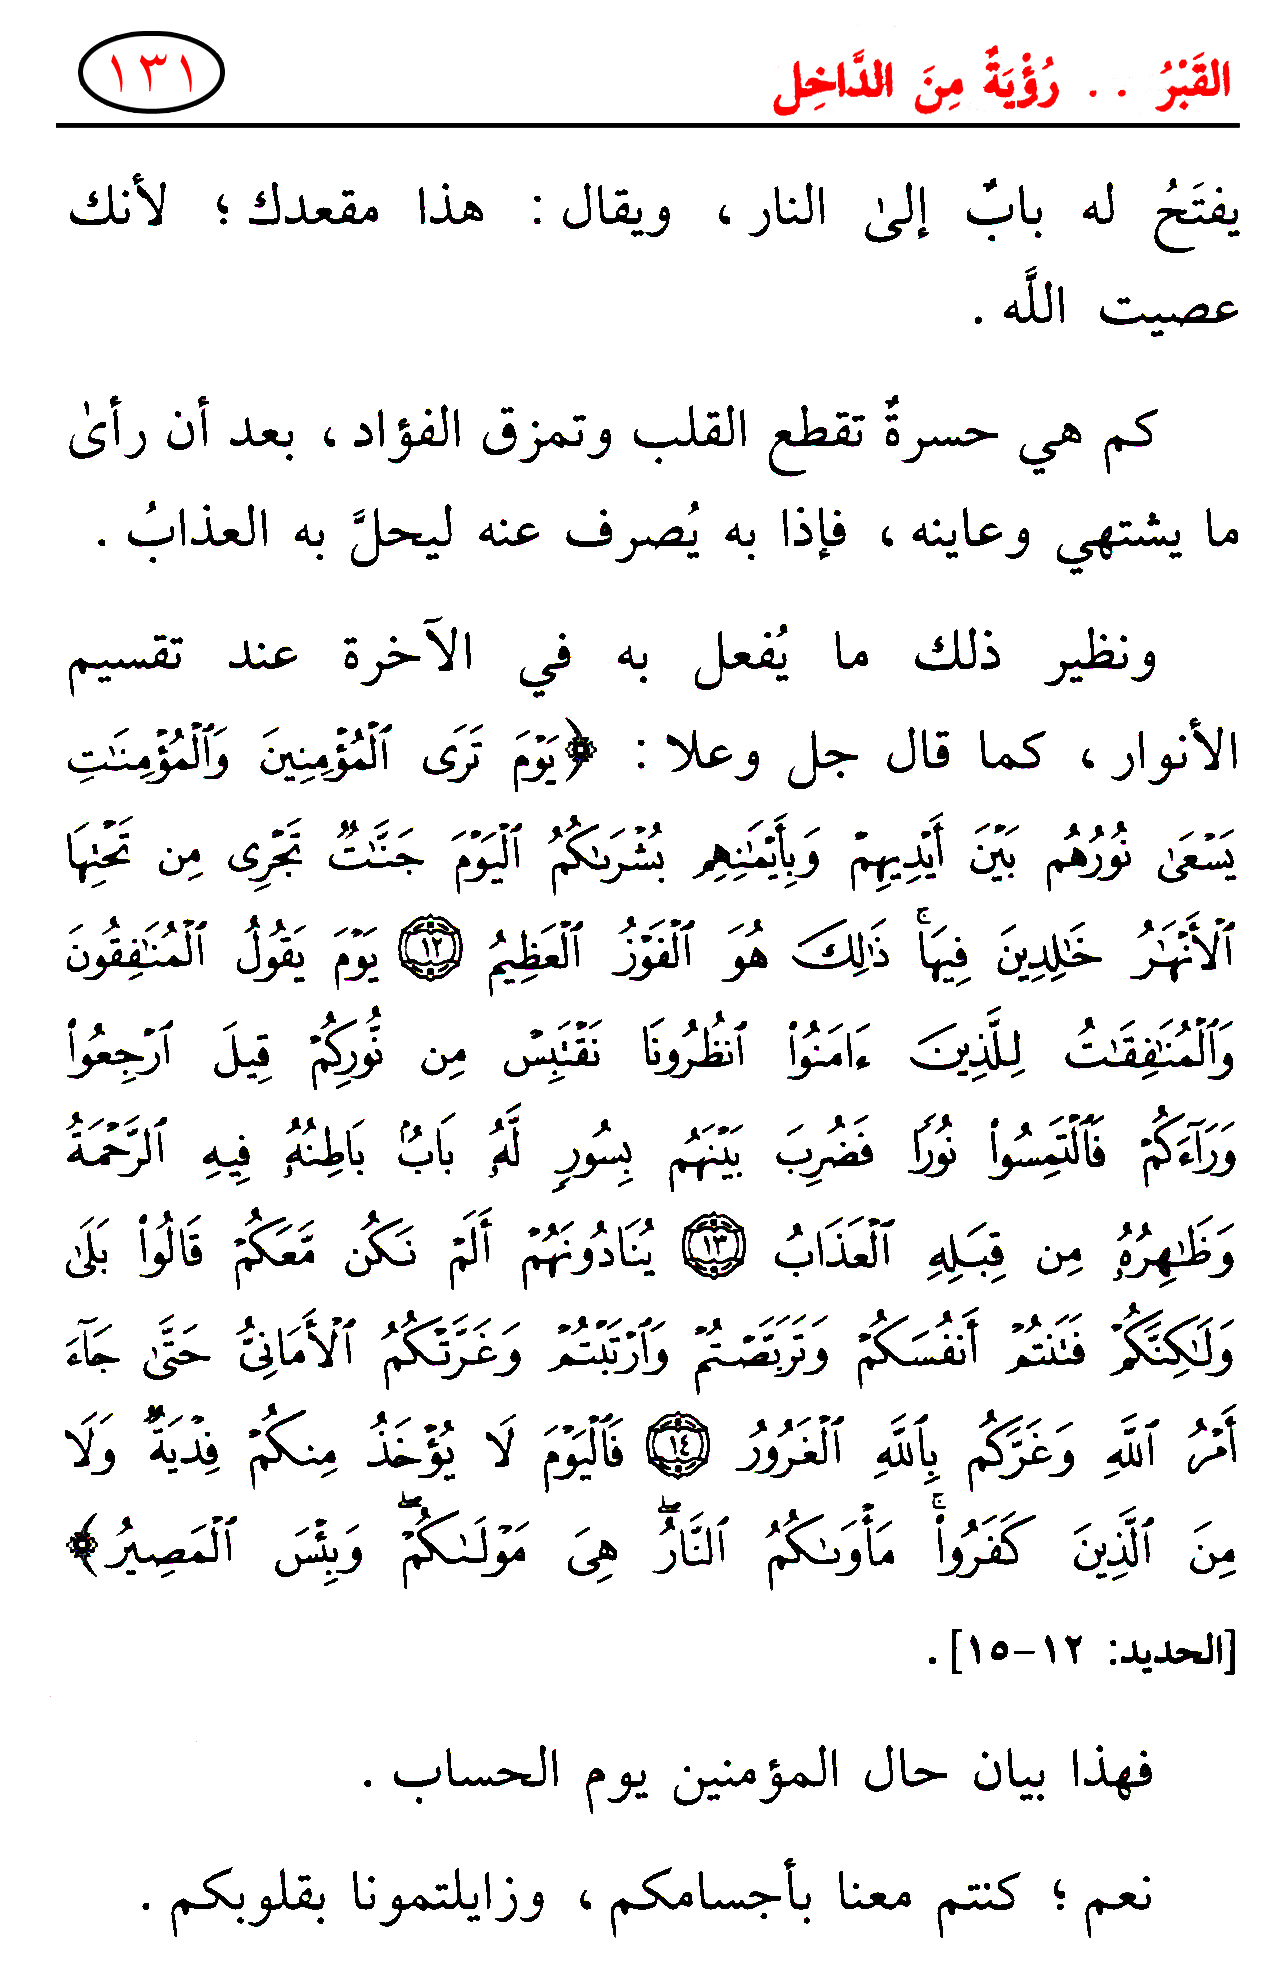 القَبْرُ .. رُؤْيَةٌ مِنَ الدَّاخِل ١٣١
يفتَحُ له بابٌ إلىٰ النار ، ويقال : هذا مقعدك ؛ لأنك
عصيت اللَّه .
كم هي حسرةٌ تقطع القلب وتمزق الفؤاد ، بعد أن رأىٰ
ما يشتهي وعاينه ، فإذا به يُصرف عنه ليحلَّ به العذابُ .
ونظير ذلك ما يُفعل به في الآخرة عند تقسيم
الأنوار ، كما قال جل وعلا : ﴿يَوْمَ تَرَى ٱلْمُؤْمِنِينَ وَٱلْمُؤْمِنَٰتِ
يَسْعَىٰ نُورُهُم بَيْنَ أَيْدِيهِمْ وَبِأَيْمَٰنِهِم بُشْرَىٰكُمُ ٱلْيَوْمَ جَنَّٰتٌ تَجْرِى مِن تَحْتِهَا
ٱلْأَنْهَٰرُ خَٰلِدِينَ فِيهَا ۚ ذَٰلِكَ هُوَ ٱلْفَوْزُ ٱلْعَظِيمُ ١٢ يَوْمَ يَقُولُ ٱلْمُنَٰفِقُونَ
وَٱلْمُنَٰفِقَٰتُ لِلَّذِينَ ءَامَنُوا۟ ٱنظُرُونَا نَقْتَبِسْ مِن نُّورِكُمْ قِيلَ ٱرْجِعُوا۟
وَرَآءَكُمْ فَٱلْتَمِسُوا۟ نُورًا فَضُرِبَ بَيْنَهُم بِسُورٍ لَّهُۥ بَابٌۢ بَاطِنُهُۥ فِيهِ ٱلرَّحْمَةُ
وَظَٰهِرُهُۥ مِن قِبَلِهِ ٱلْعَذَابُ ١٣ يُنَادُونَهُمْ أَلَمْ نَكُن مَّعَكُمْ قَالُوا۟ بَلَىٰ
وَلَٰكِنَّكُمْ فَتَنتُمْ أَنفُسَكُمْ وَتَرَبَّصْتُمْ وَٱرْتَبْتُمْ وَغَرَّتْكُمُ ٱلْأَمَانِىُّ حَتَّىٰ جَآءَ
أَمْرُ ٱللَّهِ وَغَرَّكُم بِٱللَّهِ ٱلْغَرُورُ ١٤ فَٱلْيَوْمَ لَا يُؤْخَذُ مِنكُمْ فِدْيَةٌ وَلَا
مِنَ ٱلَّذِينَ كَفَرُوا۟ ۚ مَأْوَىٰكُمُ ٱلنَّارُ ۖ هِىَ مَوْلَىٰكُمْ ۖ وَبِئْسَ ٱلْمَصِيرُ﴾
[الحديد: ١٢-١٥] .
فهذا بيان حال المؤمنين يوم الحساب .
نعم ؛ كنتم معنا بأجسامكم ، وزايلتمونا بقلوبكم .